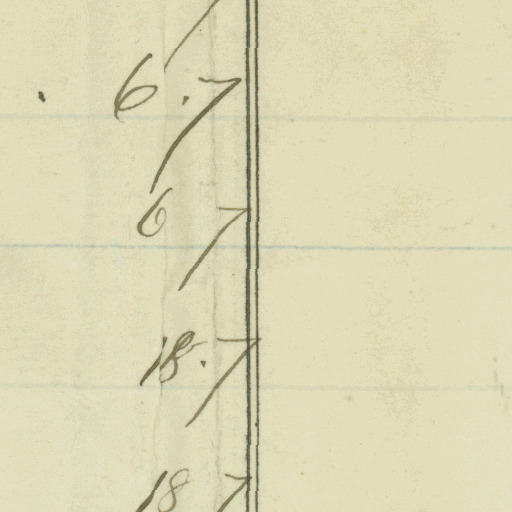 6.7
6 7
18.7
18 7